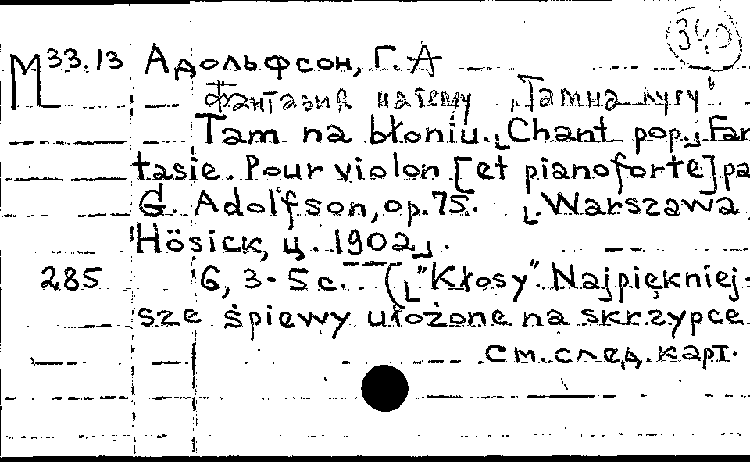 340
М 33.13 Адольфсон, Г. А
Фантазия на тему "Там на лугу"
Tam na błoniu. [Chant pop.] Fan
tasie. Pour violon [et pianoforte] pa
G. Adolfson, op. 75. [Warszawa,
Hösick, ц. 1902].
285 6, 3-5 с. ([„Kłosy". Najpiękniej-
sze śpiewy ułożone na skrzypce
см. след. карт.